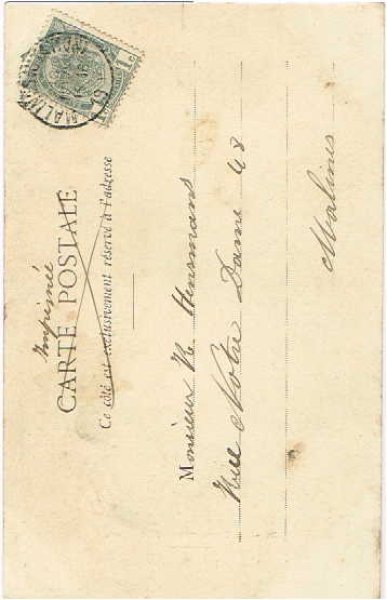 Imprimée
CARTE POSTALE
Ce côté est exclusivement réservé à l'adresse
Monsieur R Hensmans
Rue Notre Dame 48
Malines
1 c
MALINES